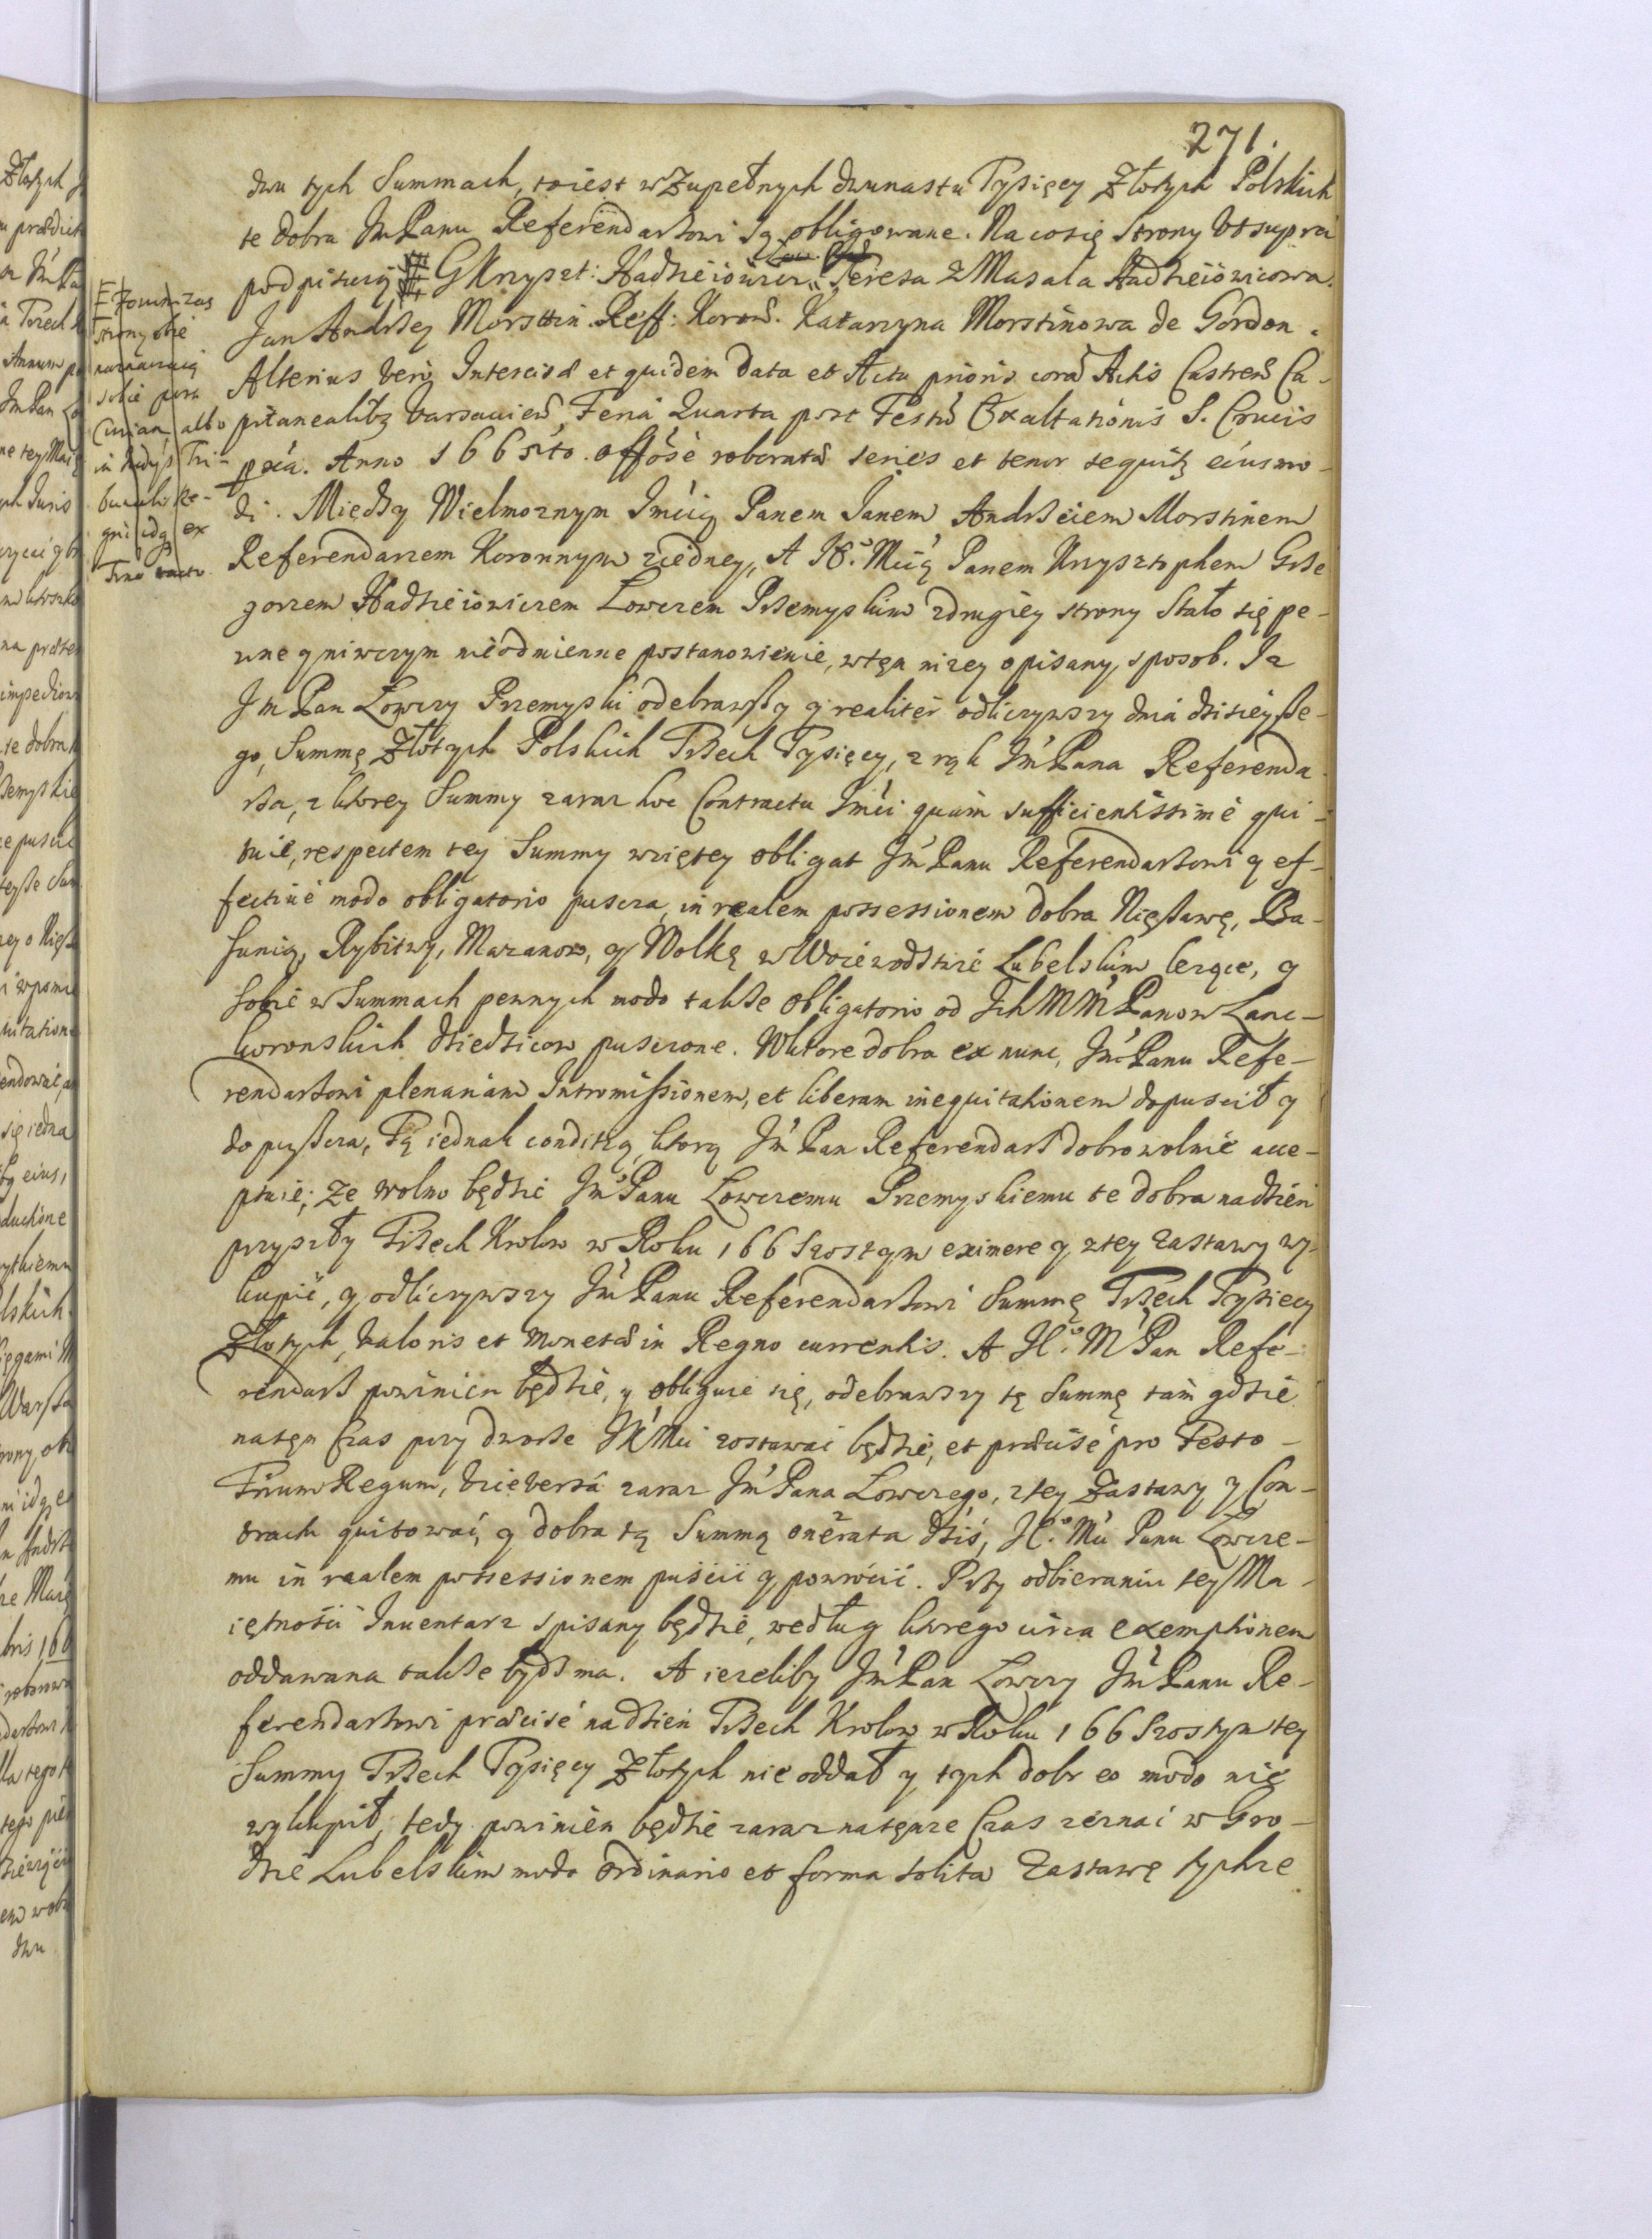 271.
dwu tych Summach, toiest w Zupełnych dwunastu Tysięcy Złotych Polskich
te dobra Jm Panu Referendarzowi są obligowane. Na co się Strony Vt supra
podpisuią # GKrzyszt: Hadzieiowicz Teresa z Masala Hadzieiowicowa.
Jan Andrzey Morsttin. Reff: Koron. Katarzyna Morstinowa de Gordon.
Alterius vero Intercisæ et quidem data et Actu prioris coram Actis Castren Ca-
pitanealibq Varsavien, Feria Quarta post Festum Exaltationis S. Crucis
pxa. Anno 1665to. offose roboratæ series et tenor sequitq eiusmo-
di. Między Wielmoznym Imcią Panem Janem Andrzeiem Morstinem
Referendarzem Koronnym ziedney, A Mcią Panem Krzysztophem Grze
gorzem Hadzieiowiczem Lowczem Przemyskim zdrugiey strony Stało się pe-
wne y niwczym nieodmienne postanowienie, wtęn nizey opisany sposob. Iz
Jm Pan Lowczy Przemyski odebrawszy y realiter odliczywszy dnia dzisieysze-
go, Summę Złotych Polskich Trzech Tysięcy, z rąk Jm Pana Referenda
rza, z ktorey Summy zaraz hoc Contractu Jmci quam sufficientissime qui-
tuie, respectem tey Summy wziętey obligat Jm Panu Referendarzowi y ef-
fective modo obligatorio puscza in realem possessionem dobra Nięszawę, Ba-
sunią, Rybitwy, Mazanow, y Wolkę w Woiewodztwie Lubelskim lezące, y
sobie w Summach pewnych modo takze obligatorio od Ich MM Panow Lanc-
koronskich dziedzicow pusczone. W ktore dobra ex nunc, Jm Panu Refe-
rendarzowi plenariam Intromissionem, et liberam inequitationem dopuscił y
dopuszcza, Tą iednak conditią, ktorą Jm Pan Referendarz dobrowolnie acce-
ptuie; ze wolno będzie Jm Panu Lowczemu Przemyskiemu te dobra nadzien
przyszły Trzech Krolow w Roku 166 Szostym eximere y ztey zastawy wy-
kupić, y odliczywszy Jm Panu Referendarzowi Summę Trzech Tysięcy
Złotych, valoris et monetæ in Regno currentis. A M Pan Refe-
rendarz powinien będzie, y obliguie się, odebrawszy tę Summę tam gdzie
natęn Czas przy dworze zostawac będzie, et præcise pro Festo
Trium Regum, vice versa zaraz Jm Pana Lowczego, ztey Zastawy y Con-
tractu quitowac, y dobra tą Summą onerata dzis, Panu Lowcze-
mu in realem possessionem puscic y powrocic. Przy odbieraniu tey Ma-
iętnosci Inuentarz spisany będzie, według ktorego circa exemptionem
oddawana takze bydz ma. A iezeliby Jm Pan Lowczy Jm Panu Re-
ferendarzowi præcise nadzien Trzech Krolow w Roku 166 Szostym tey
Summy Trzech Tysięcy Złotych nie oddał y tych dobr eo modo nie
wykupił, tedy powinien będzie zaraz natęnze Czas zeznac w Gro-
dzie Lubelskim modo ordinario et forma solita Zastawę tychze
Strony obie
naznaczaią
sobie
Curiam, albo
in Judys Tri-
bunali Re-
gni idq ex